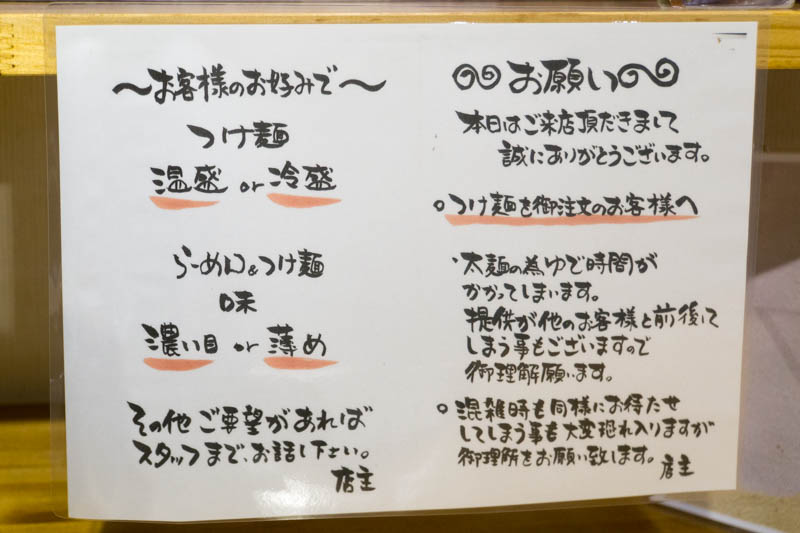 ～お客様のお好みで～
つけ麺
温盛 or 冷盛
らーめん&つけ麺
味
濃い目 or 薄め
その他ご要望があれば
スタッフまで、お話し下さい。
店主
お願い
本日はご来店頂だきまして
誠にありがとうございます。
○つけ麺を御注文のお客様へ
・太麺の為ゆで時間が
かかってしまいます。
提供が他のお客様と前後して
しまう事もございますので
御理解願います。
○混雑時も同様にお待たせ
してしまう事も大変恐れ入りますが
御理解をお願い致します。
店主